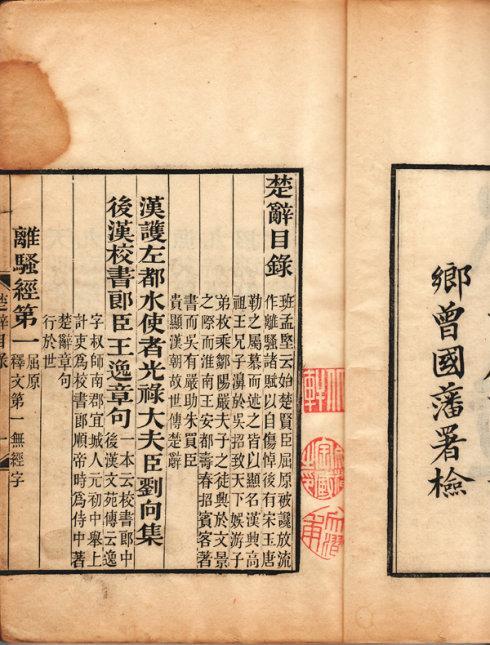 鄉曾國藩署檢
楚辭目錄
班孟堅云始楚賢臣屈原被讒放流
作離騷諸賦以自傷悼後有宋玉唐
勒之屬慕而述之皆以顯名漢興高
祖王兄子濞於吳招致天下娛游子
弟枚乘鄒陽嚴夫子之徒興於文景
之際而淮南王安都壽春招賓客著
書而吳有嚴助朱買臣
貴顯漢朝故世傳楚辭
漢護左都水使者光祿大夫臣劉向集
後漢校書郎臣王逸章句
一本云校書郎中
後漢文苑傳云逸
字叔師南郡宜城人元初中舉上
計吏為校書郎順帝時為侍中著
楚辭章句
行於世
離騷經第一
屈原
釋文第一無經字
楚辭目錄